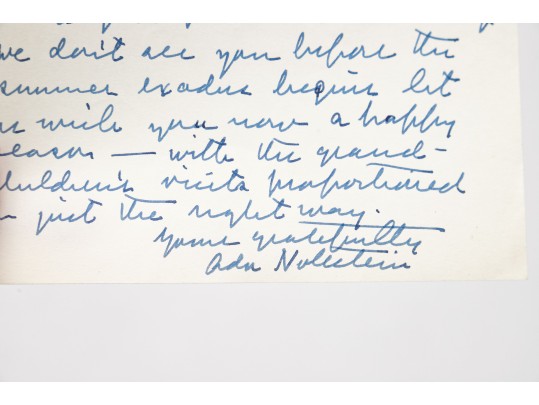 we don't see you before the
summer exodus begins let
us wish you now a happy
season — with the grand-
children's visits proportioned
just the right way.
Yours gratefully
Ada